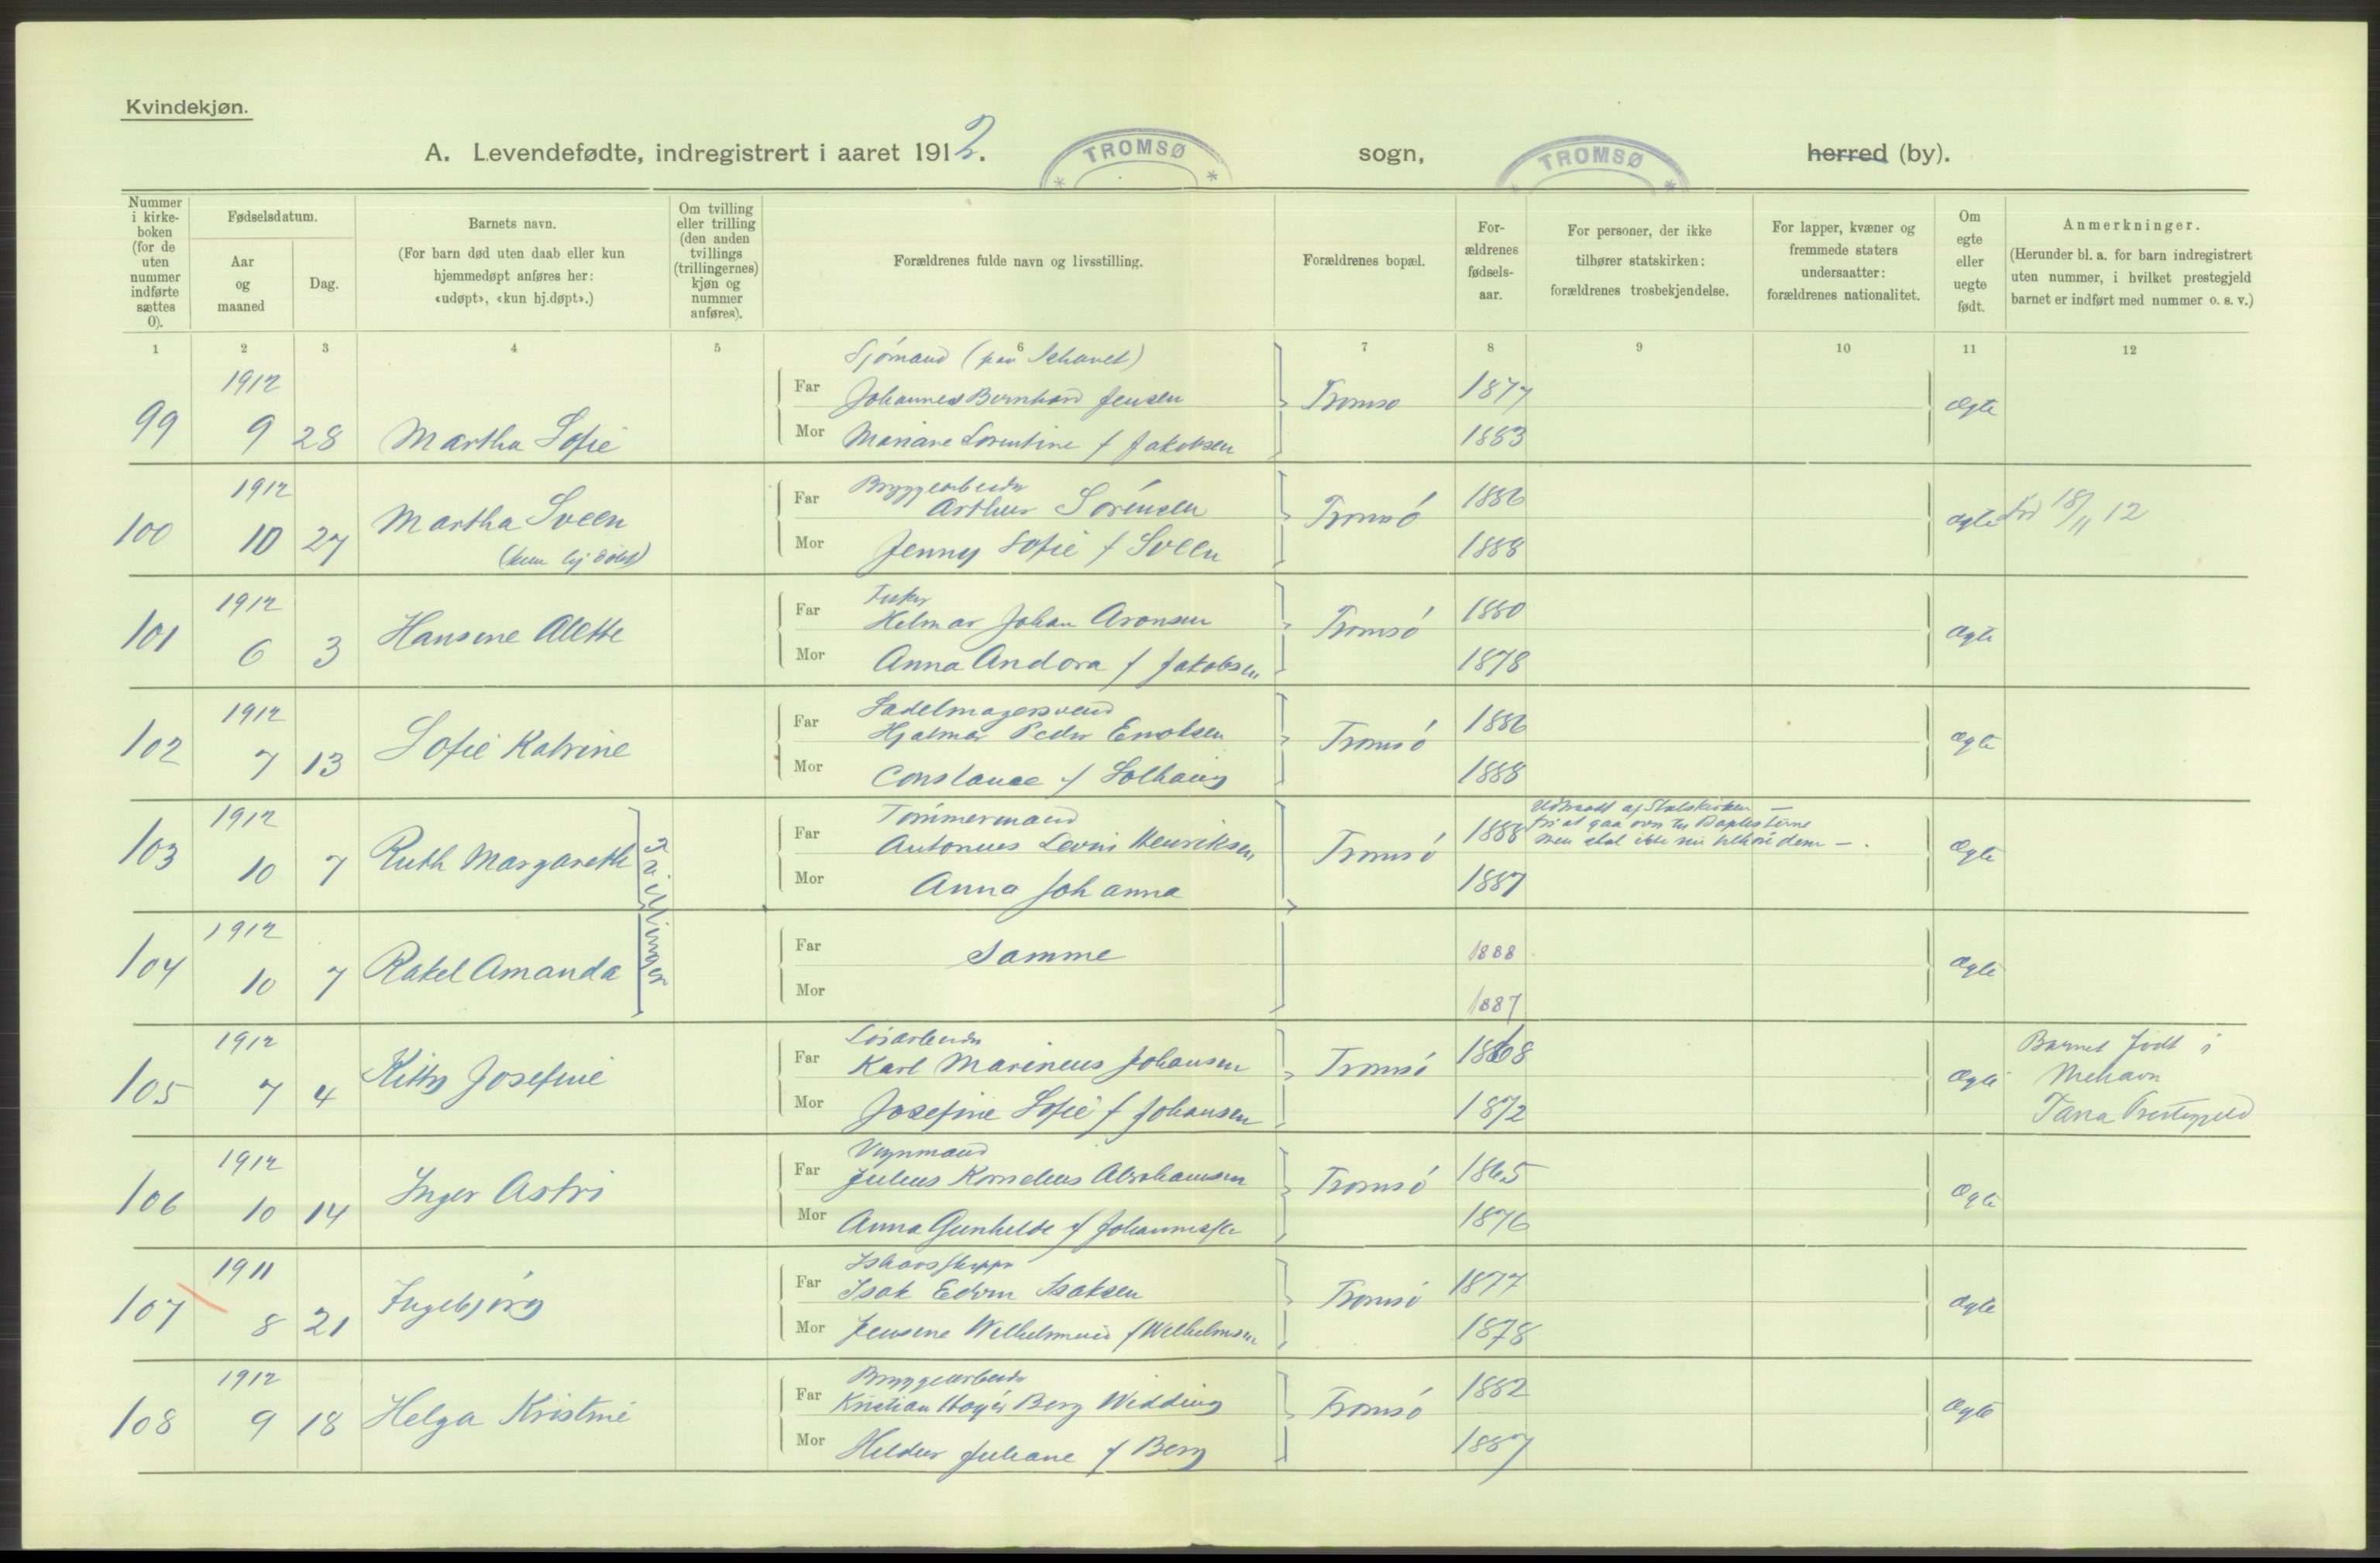 Kvindekjøn.
A. Levendefødte, indregistrert i aaret 1912. TROMSØ sogn, TROMSØ herred (by).
Nummer i kirkeboken (for de uten nummer indførte sættes 0).
Fødselsdatum.
Aar og maaned
Dag.
Barnets navn.
(For barn død uten daab eller kun hjemmedøpt anføres her: «udøpt», «kun hj.døpt».)
Om tvilling eller trilling (den anden tvillings (trillingernes) kjøn og nummer anføres).
Forældrenes fulde navn og livsstilling.
Forældrenes bopæl.
Forældrenes fødselsaar.
For personer, der ikke tilhører statskirken: forældrenes trosbekjendelse.
For lapper, kvæner og fremmede staters undersaatter: forældrenes nationalitet.
Om egte eller uegte født.
Anmerkninger.
(Herunder bl. a. for barn indregistrert uten nummer, i hvilket prestegjeld barnet er indført med nummer o. s. v.)
1 2 3 4 5 6 7 8 9 10 11 12
Sjømand (paa Ishavet)
1912 Far Johannes Bernhard Jensen Tromsø 1877 Ægte
99 9 28 Martha Sofie Mor Mariane Lorentine f Jakobsen 1883
Bryggearbeider
1912 Far Arthur Sørensen Tromsø 1886 Ægte 18/11 12
100 10 27 Martha Sveen Mor Jenny Sofie f Sveen 1888
(kun hj døbt)
Fisker
1912 Far Helmar Johan Aronsen Tromsø 1880 Ægte
101 6 3 Hansine Alette Mor Anna Andora f Jakobsen 1878
Sadelmagersvend
1912 Far Hjalmar Peder Enoksen Tromsø 1886 Ægte
102 7 13 Sofie Katrine Mor Constance f Solhaug 1888
Tømmermand
1912 Far Antonius Levin Henriksen Tromsø 1888 Ægte
Udtraadt af Statskirken —
for at gaa over til Baptisterne
men skal ikke nu tilhøre dem —.
103 10 7 Ruth Margareth Mor Anna Johanna 1887
Tvillinger
1912 Far Samme 1888 Ægte
104 10 7 Rakel Amanda Mor 1887
Løsarbeider
1912 Far Karl Marineus Johansen Tromsø 1868 Ægte
105 7 4 Kitty Josefine Mor Josefine Sofie f Johansen 1872
Barnet født i
Mehavn
Tana Prestegjeld
Vognmand
1912 Far Julius Kornelius Abrahamsen Tromsø 1865 Ægte
106 10 14 Inger Astri Mor Anna Gunhilde f Johannessen 1876
Ishavsskipper
1911 Far Isak Edvin Isaksen Tromsø 1877 Ægte
107 8 21 Ingebjørg Mor Jensine Wilhelmine f Wilhelmsen 1878
Bryggearbeider
1912 Far Kristian Høyer Berg Widding Tromsø 1882 Ægte
108 9 18 Helga Kristine Mor Hildur Juliane f Berg 1887